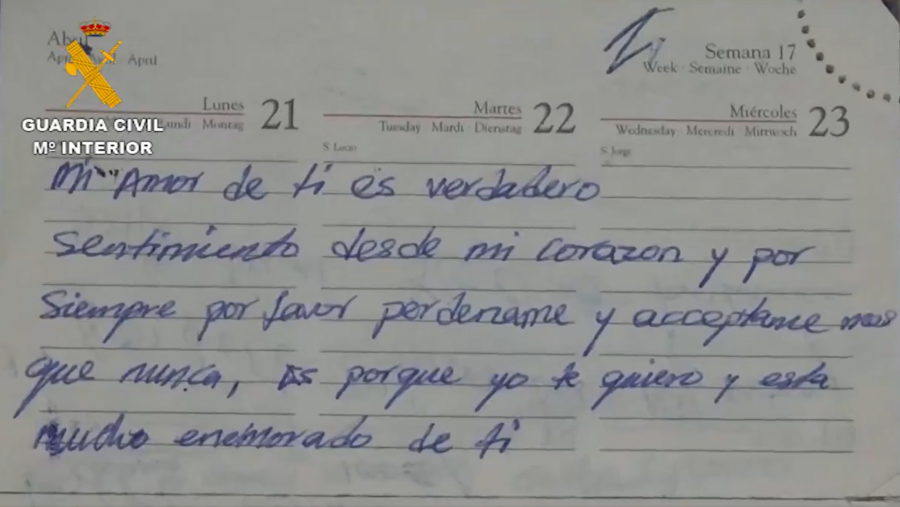 Abril
April
GUARDIA CIVIL
Mº INTERIOR
Semana 17
Week · Semaine · Woche
Lunes 21
Lundi · Montag
Martes 22
Tuesday · Mardi · Dienstag
S. Lucio
Miércoles 23
Wednesday · Mercredi · Mittwoch
S. Jorge
Mi "Amor de ti es verdadero
sentimiento desde mi corazon y por
siempre por favor perdename y acceptame mas
que nunca, es porque yo te quiero y esta
mucho enemorado de ti